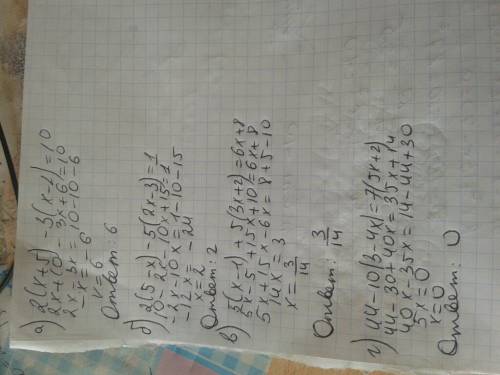 а) 2(x+5) - 3(x-2) = 10
2x+10 - 3x+6 = 10
2x - 3x = 10-10-6
-x = -6
x = 6
Ответ: 6
б) 2(5-x) - 5(2x-3) = 1
10 - 2x - 10x + 15 = 1
-2x - 10x = 1-10-15
-12x = -24
x = 2
Ответ: 2
в) 5(x-1) + 5(3x+2) = 6x+8
5x-5+15x+10 = 6x+8
5x+15x-6x = 8+5-10
14x = 3
x = 3/14
Ответ: 3/14
г) 44-10(3-4x) = 7(5x+2)
44-30+40x = 35x+14
40x-35x = 14-44+30
5x = 0
x = 0
Ответ: 0